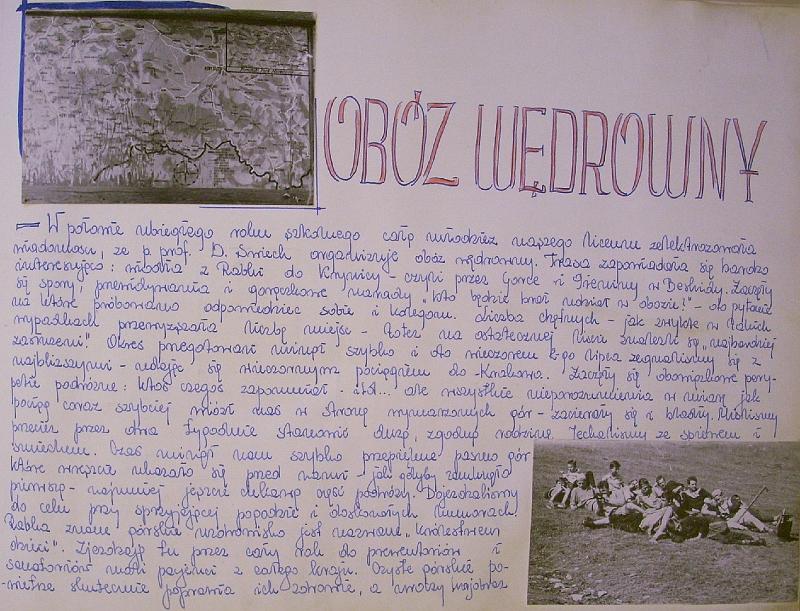 OBÓZ WĘDROWNY
— W połowie ubiegłego roku szkolnego całą młodzież naszego liceum zelektryzowała
wiadomość, że p. prof. D. Śmiech organizuje obóz wędrowny. Trasa zapowiadała się bardzo
interesująco: wiodła z Rabki do Krynicy - czyli przez Gorce i Pieniny w Beskidy. Zaczęły
się spory, przewidywania i gorączkowe narady „kto będzie brał udział w obozie?" - oto pytanie
na które próbowano odpowiedzieć sobie i kolegom. Liczba chętnych - jak zwykle w takich
wypadkach przewyższała liczbę miejsc - toteż na ostatecznej liście znaleźli się „najbardziej
zasłużeni". Okres przygotowań minął szybko i oto wieczorem lipca żegnaliśmy się z
najbliższymi - udając się wieczornym pociągiem do Krakowa. Zaczęły się obowiązkowe
podróżne: ktoś czegoś zapomniał - itd... ale wszystkie nieporozumienia w miarę jak
pociąg coraz szybciej wiózł nas w stronę wymarzonych gór - zacierały się i bladły. Mieliśmy
przecież przez dwa tygodnie stanowić dużą, zgodną rodzinę. Jechaliśmy ze śpiewem i
śmiechem. Czas minął nam szybko przepiękne pasmo gór
które wreszcie ukazało się przed nami - jak gdyby zamknęło
pierwszą - najmniej jeszcze ciekawą część podróży. Dojeżdżaliśmy
do celu przy sprzyjającej pogodzie i doskonałych humorach.
Rabka znane górskie uzdrowisko jest nazwane „królestwem
dzieci". Zjeżdżają tu przez cały rok do prewentoriów i
sanatoriów mali pacjenci z całego kraju. Czyste górskie po-
-wietrze skutecznie poprawia ich zdrowie, a uroczy krajobraz